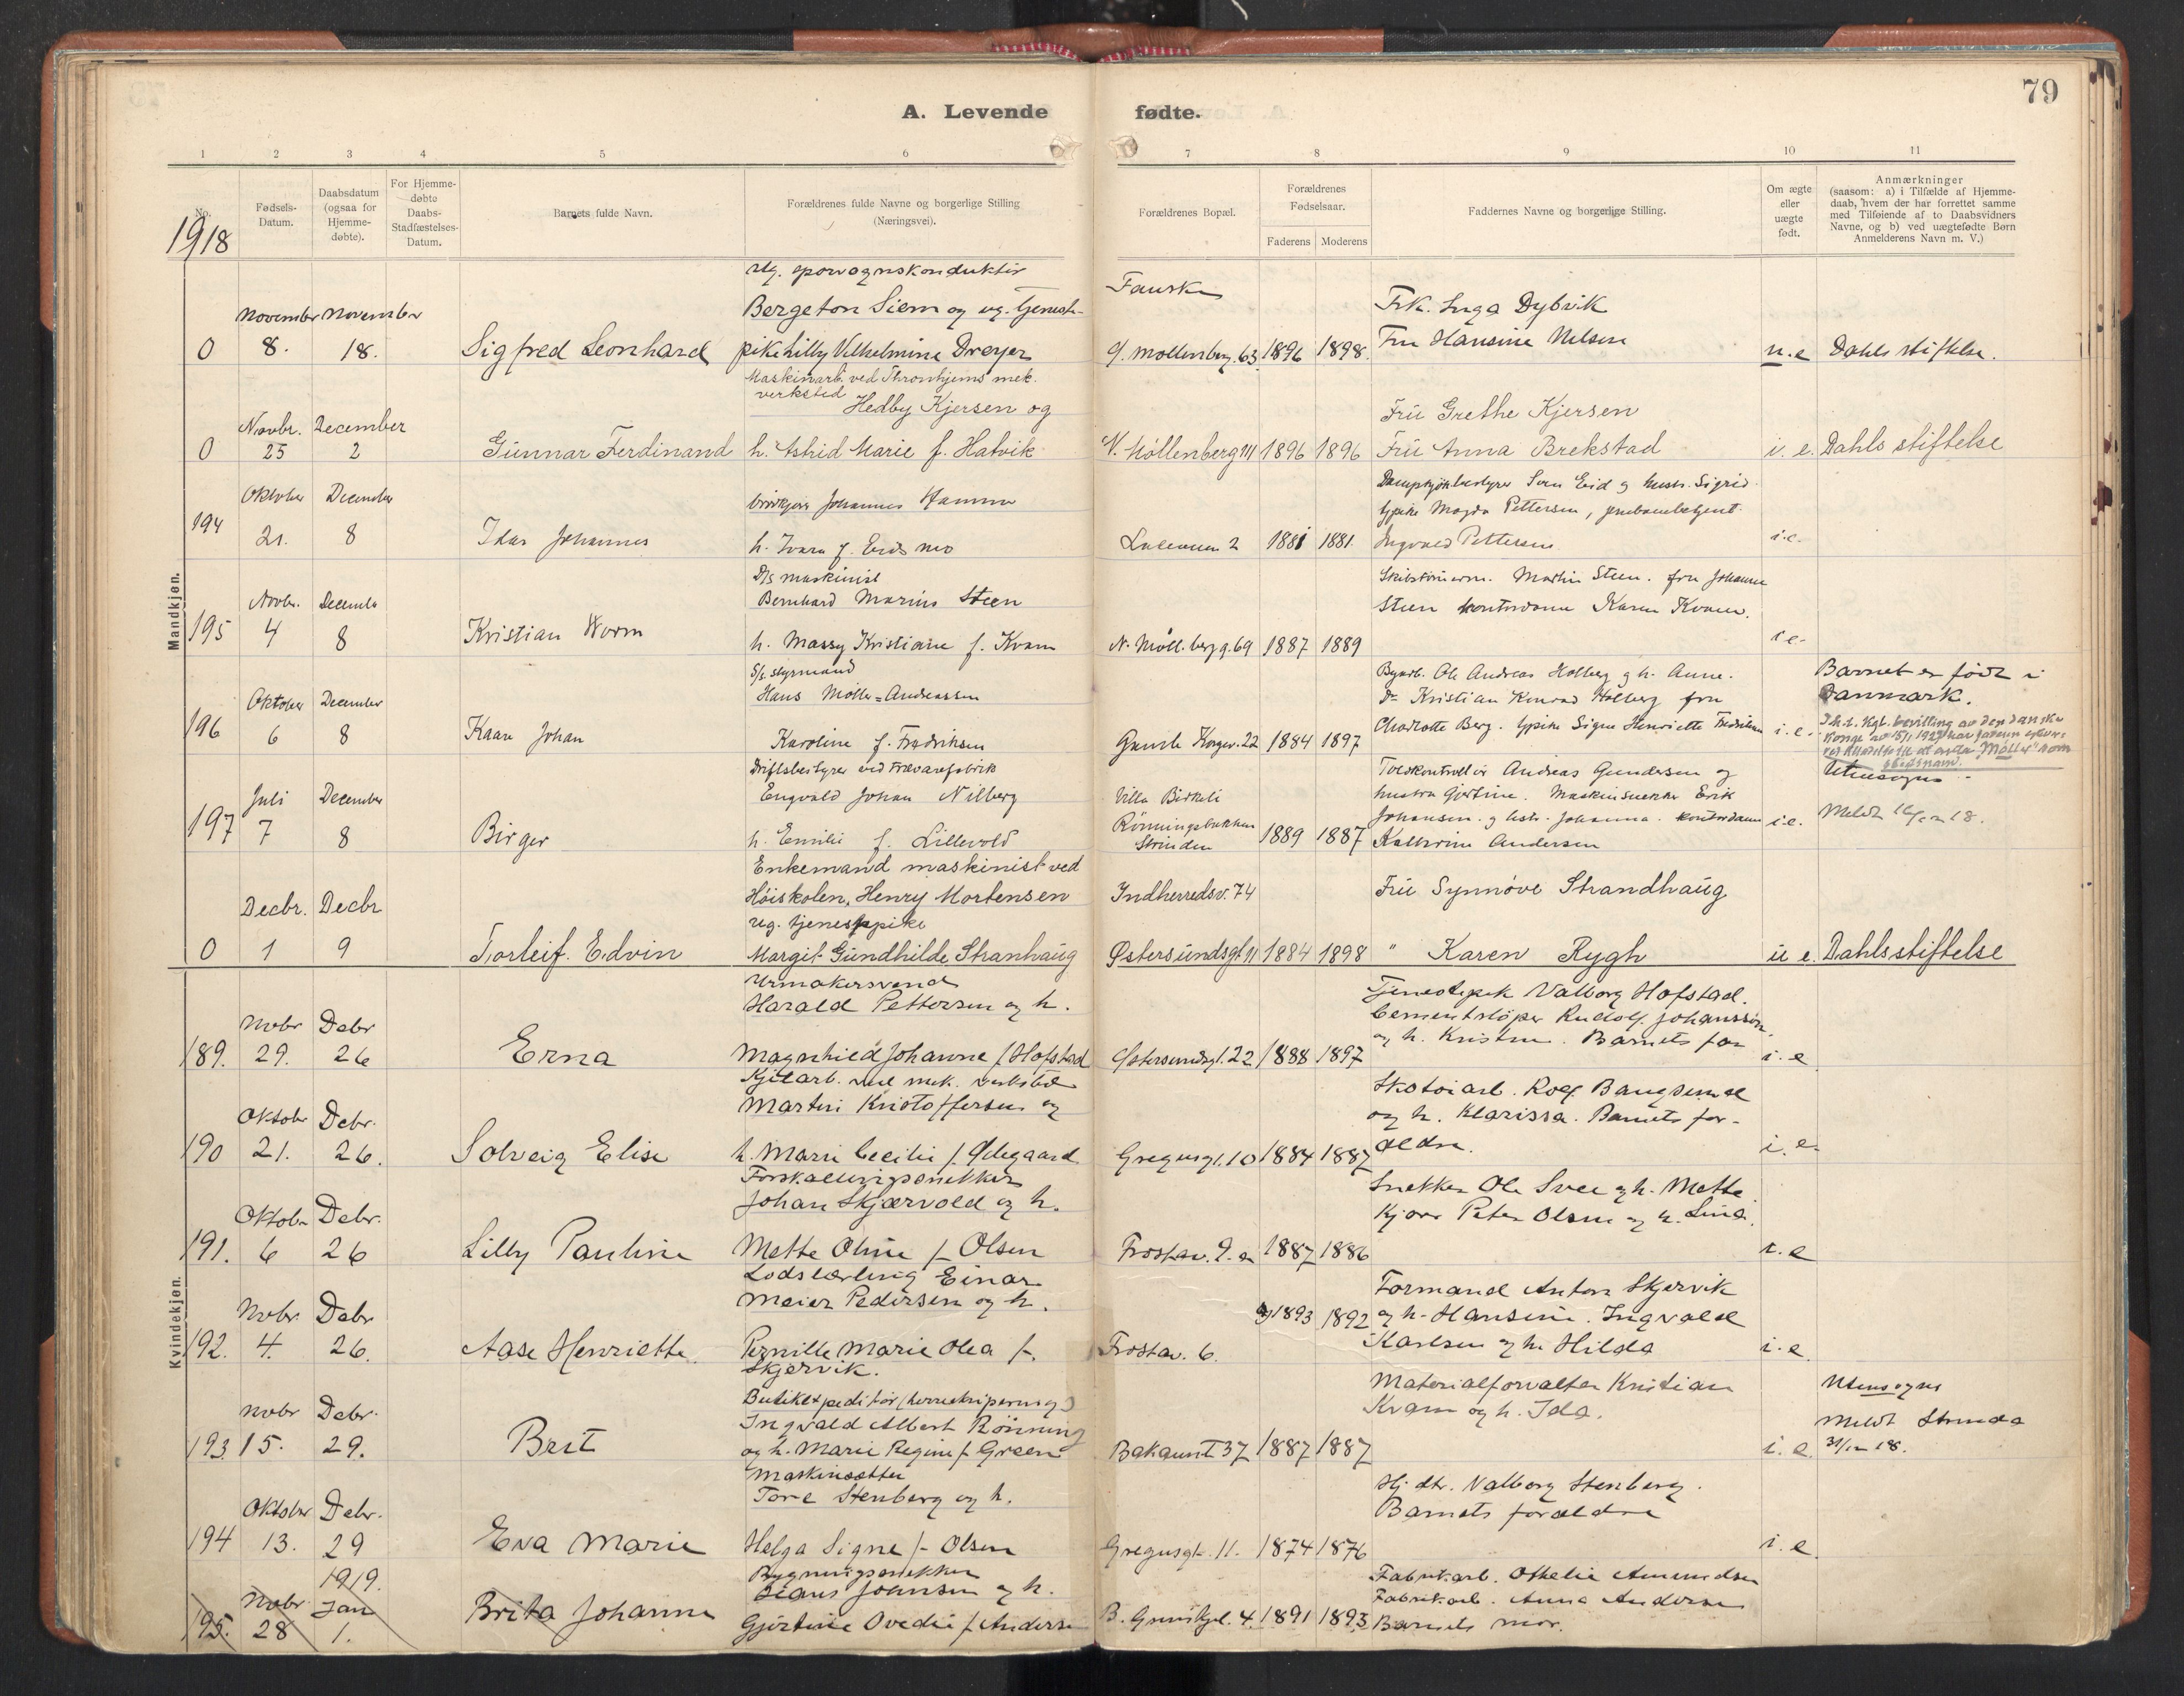 79
A. Levende fødte.
1 2 3 4 5 6 7 8 9 10 11
No.
Fødsels-
Datum.
Daabsdatum
(ogsaa for
Hjemme-
døbte).
For Hjemme-
døbte
Daabs-
Stadfæstelses-
Datum.
Barnets fulde Navn.
Forældrenes fulde Navne og borgerlige Stilling
(Næringsvei).
Forældrenes Bopæl.
Forældrenes
Fødselsaar.
Faderens Moderens
Faddernes Navne og borgerlige Stilling.
Om ægte
eller
uægte
født.
Anmærkninger
(saasom: a) i Tilfælde af Hjemme-
daab, hvem der har forrettet samme
med Tilføiende af to Daabsvidners
Navne, og b) ved uægtefødte Børn
Anmelderens Navn m. V.)
1918
Mandkjøn.
ug. sporvognskonduktør
November November Bergeton Siem og ug. tjeneste- Frk. Inga Dybvik
0 8. 18. Sigfred Leonhard pike Lilly Vilhelmine Dreyer Mollenberg. 63 1896 1898 Fru Hansine Nelsen u.e Dahls stiftelse.
Maskinarb. ved Thronhjems mek.
verksted
Hedby Kjersen og Frü Grethe Kjersen
Novbr. December
0 25 2 Günnar Ferdinand h. Astrid Marie f. Hatvik 1896 1896 Frü Anna Brekstad i. e. Dahls stiftelse
Oktober December Johannes Hammer
194 21. 8 Idar Johannes 2 1881 1881 Ingvald Pettersen i.e.
D/s maskinist
Novbr. Decembr Bernhard Marius Steen Martin Steen. fru Johanne
Steen kontordame Karen Kvam.
195 4 8 Kristian Worm h. Massy Kristiane f. Kvam N. Møll.berg g. 69 1887 1889 i e.
S/s. styrmand
Oktober December Hans Møller=Andreassen Ole Andreas Holberg og h. Anne.
Kristian Konrad Holberg fru Barnet er født i
Danmark.
196 6 8 Kaare Johan Karoline f. Fredriksen Gamle Kongev. 22 1884 1897 Charlotte Berg. Signe Henriette Fredriksen i. e.
Driftsbestyrer ved Trævarefabrik Utensogns
Juli December Engvald Johan Nilberg Villa Birkeli Toldkontrollør Andreas Gundersen og
hustru Gjertine. Maskinsnekker Erik
197 7 8 Birger h. Emilie f. Lillevold Strinden 1889 1887 Johansen og hstr. Johanna. kontordame i.e.
Kathrine Andersen
Enkemand maskinist ved
Decbr. Decbr Høiskolen, Henry Mortensen Indherredsv. 74 Frü Synnøve Strandhaüg
ug. tjenestepike
0 1 9 Torleif. Edvin Margit Gündhilde Stranhaüg Østersündsgt 11 1884 1898 " Karen Rygh ü e. Dahls stiftelse
Kvindekjøn.
Urmakersvend
Novbr Debr Harald Pettersen og h. Tjenestepik Valborg Hofstad.
Cementstøper Rudolf Johansson
189. 29. 26 Erna Magnhild Johanne f Hofstad Østersundsgt. 22 1888 1897 og h. Kristine. Barnets far i. e
Kjelarb. ved mek. verksted
Oktobr Debr. Martin Kristoffersen og Skotøiarb. Rolf Bangsund
og h. Klarissa. Barnets for-
190 21. 26. Solveig Elise h. Marie Cecilie f. Ødegaard Gregusgt. 10 1884 1887 ældre. i. e.
Forskallingssnekker
Oktobr Debr. Johan Skjærvold og h. Snekker Ole Svee og h. Mette.
Kjører Peter Olsen og h. Lina.
191. 6 26 Lilly Pauline Mette Oline f. Olsen Frostav. 2. a 1887 1886 i. e
Lodslærling Einar
Novbr Debr Meier Pedersen og h. Formand Anton Skjervik
1893 1892 og h. Hansine. Ingvald
192. 4. 26. Aase Henriette. Pernille Marie Olea f. Frostav. 6. Karlsen og h. Hilda i. e.
Skjervik.
Butikekspeditør (herreekipering) Materialforvalter Kristian Utensogns
Novbr Debr. Ingvald Albert Rönning Kvam og h. Ida. Meldt Strinda
193 15. 29. Brit og h. Marie Regine f. Green Bakaunet 37 1887 1887 i. e. 31/12 18.
Maskinsætter
Oktobr Debr. Tore Stenberg og h. Hj. dtr. Valborg Stenberg.
Barnets forældre
194 13. 29 Eva Marie Helga Signe f. Olsen Gregusgt. 11. 1874 1876 i. e.
1919. Bygningssnekker
Novbr Jan Hans Johnsen og h. Fabrikarb. Othelie Amundsen
Fabrikarb. Anna Andersen
195. 28 1. Brita Johanne Gjertine Ovedie f. Andersen 4. 1891 1893 Barnets mor.